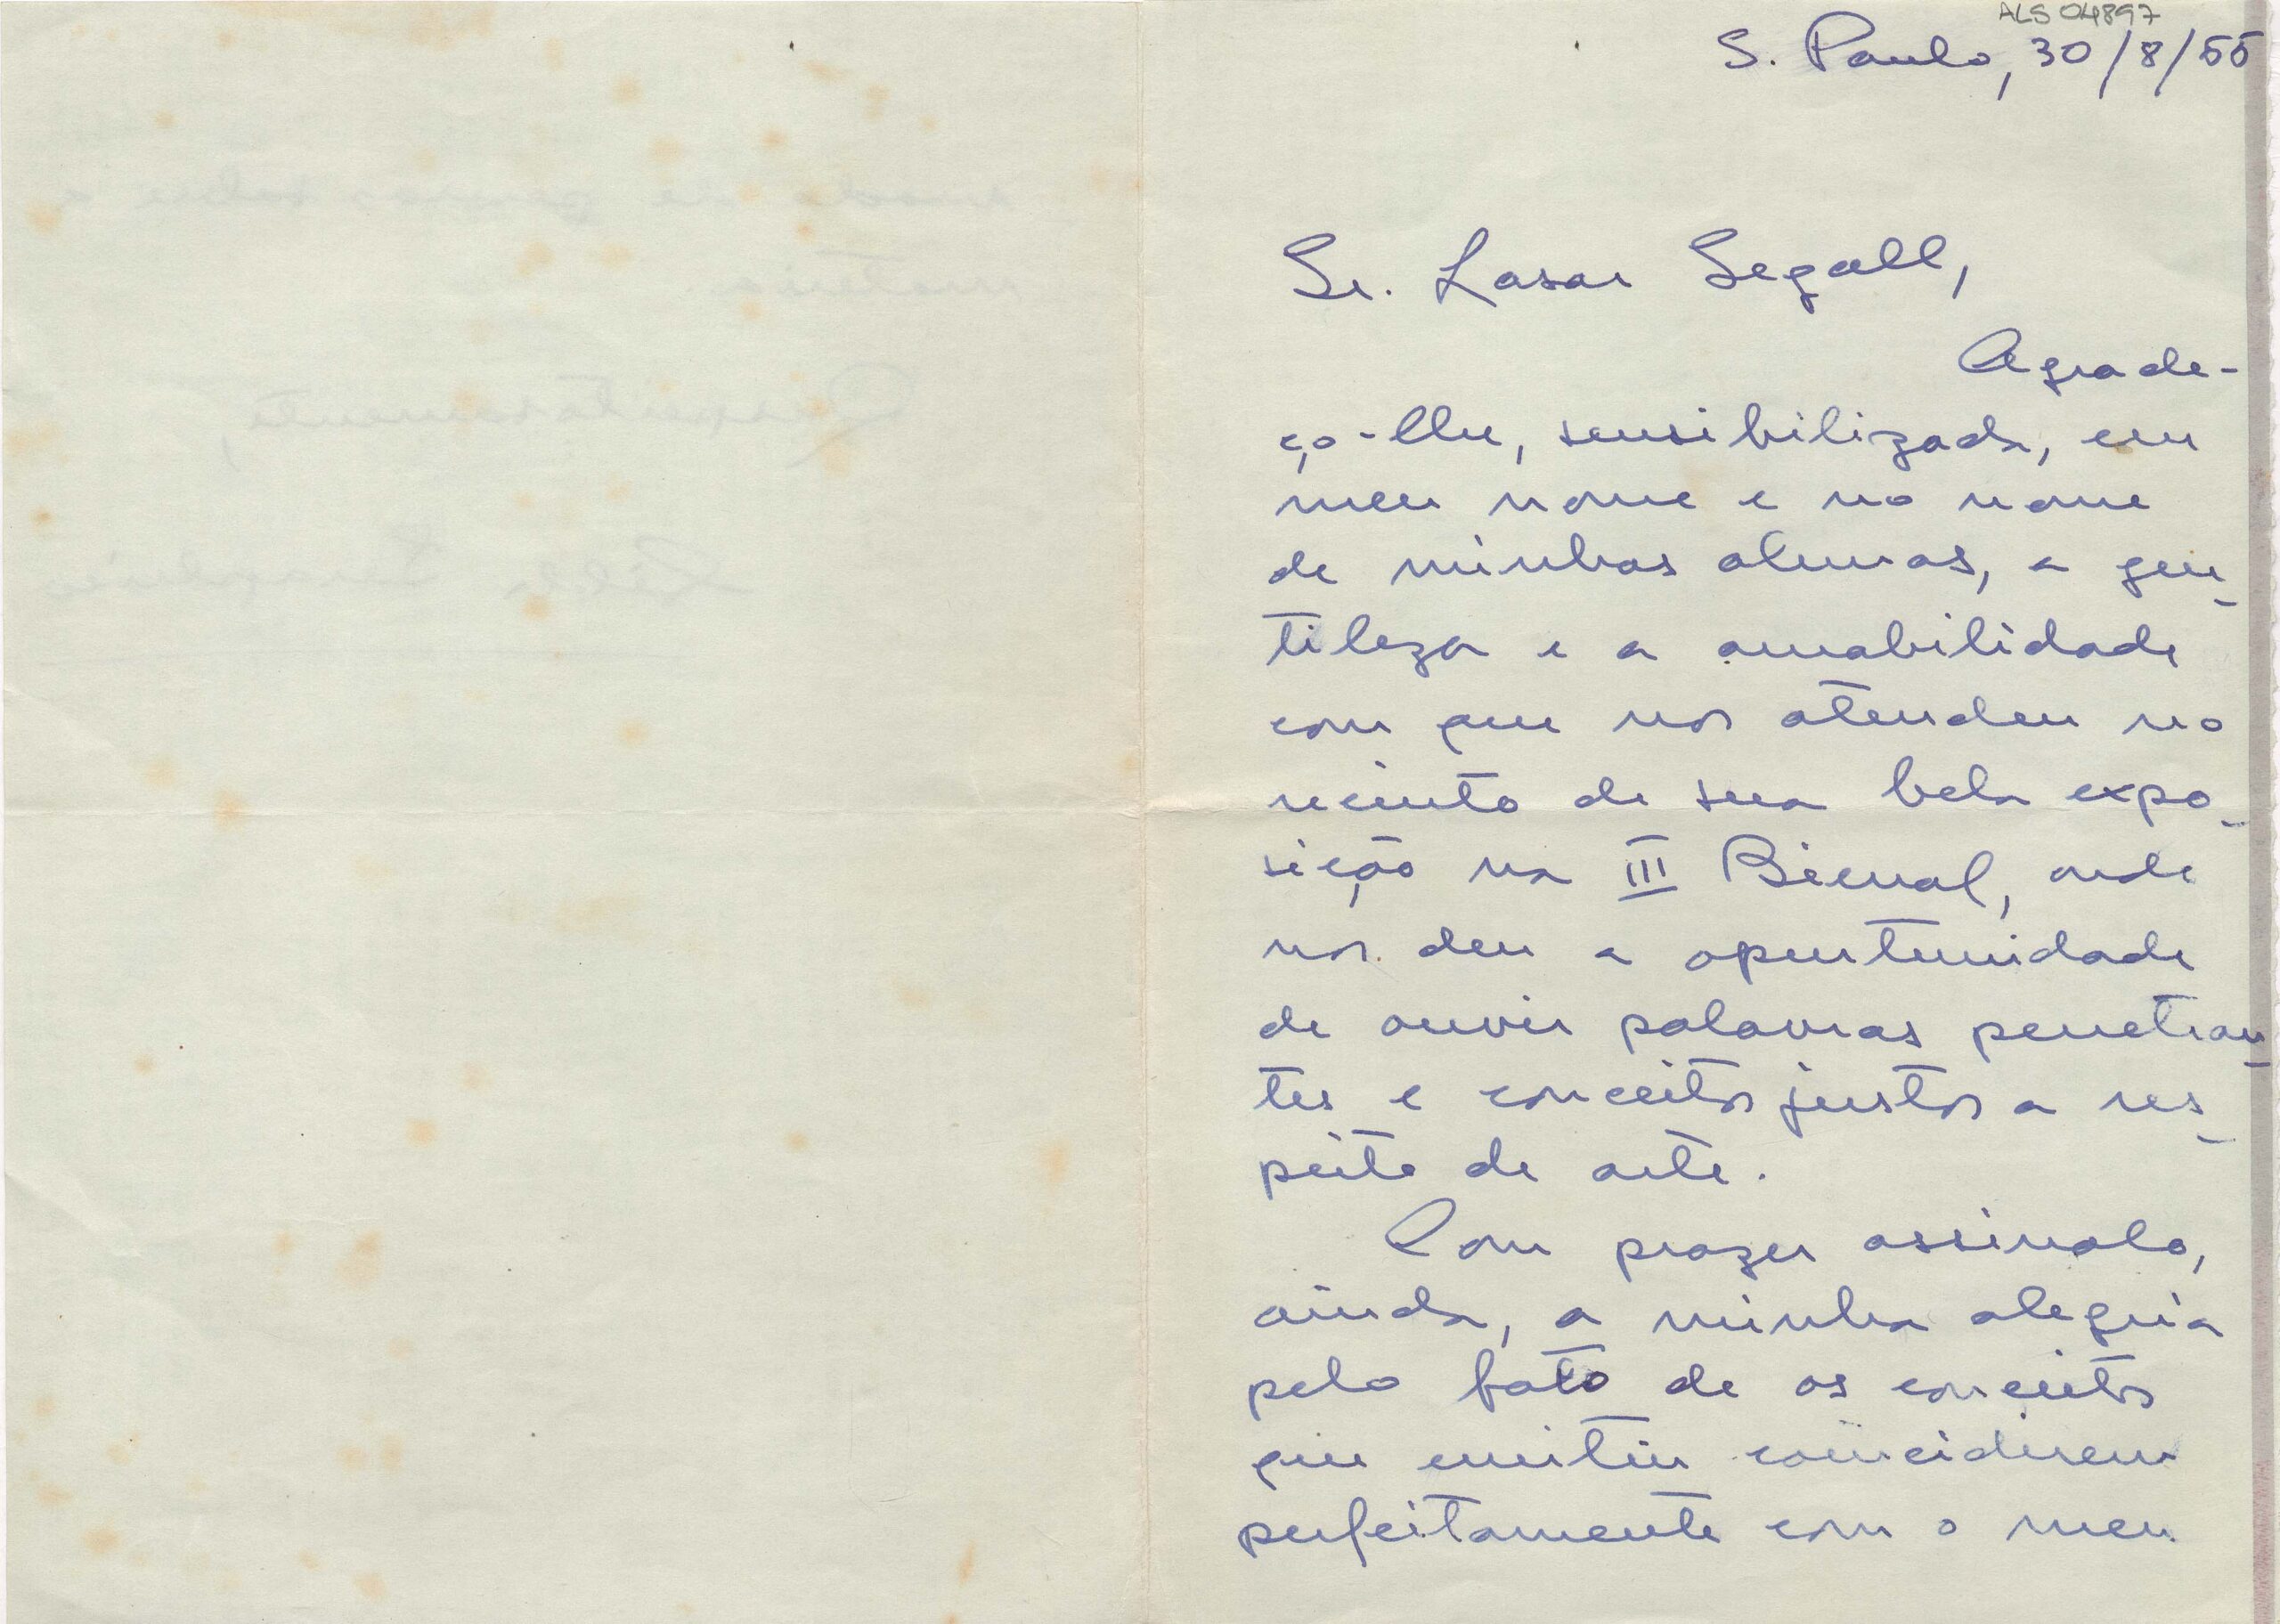 ALS 04897
S. Paulo, 30/8/55
Sr. Lasar Segall,
Agrade-
ço-lhe, sensibilizada, em
meu nome e no nome
de minhas alunas, a gen-
tileza e a amabilidade
com que nos atendeu no
recinto de sua bela expo-
sição na III Bienal, onde
nos deu a oportunidade
de ouvir palavras penetran-
tes e conceitos justos a res-
peito de arte.
Com prazer assinalo,
ainda, a minha alegria
pelo fato de os conceitos
que emitiu coincidirem
perfeitamente com o meu
modo de pensar sobre a
matéria.
Respeitosamente,